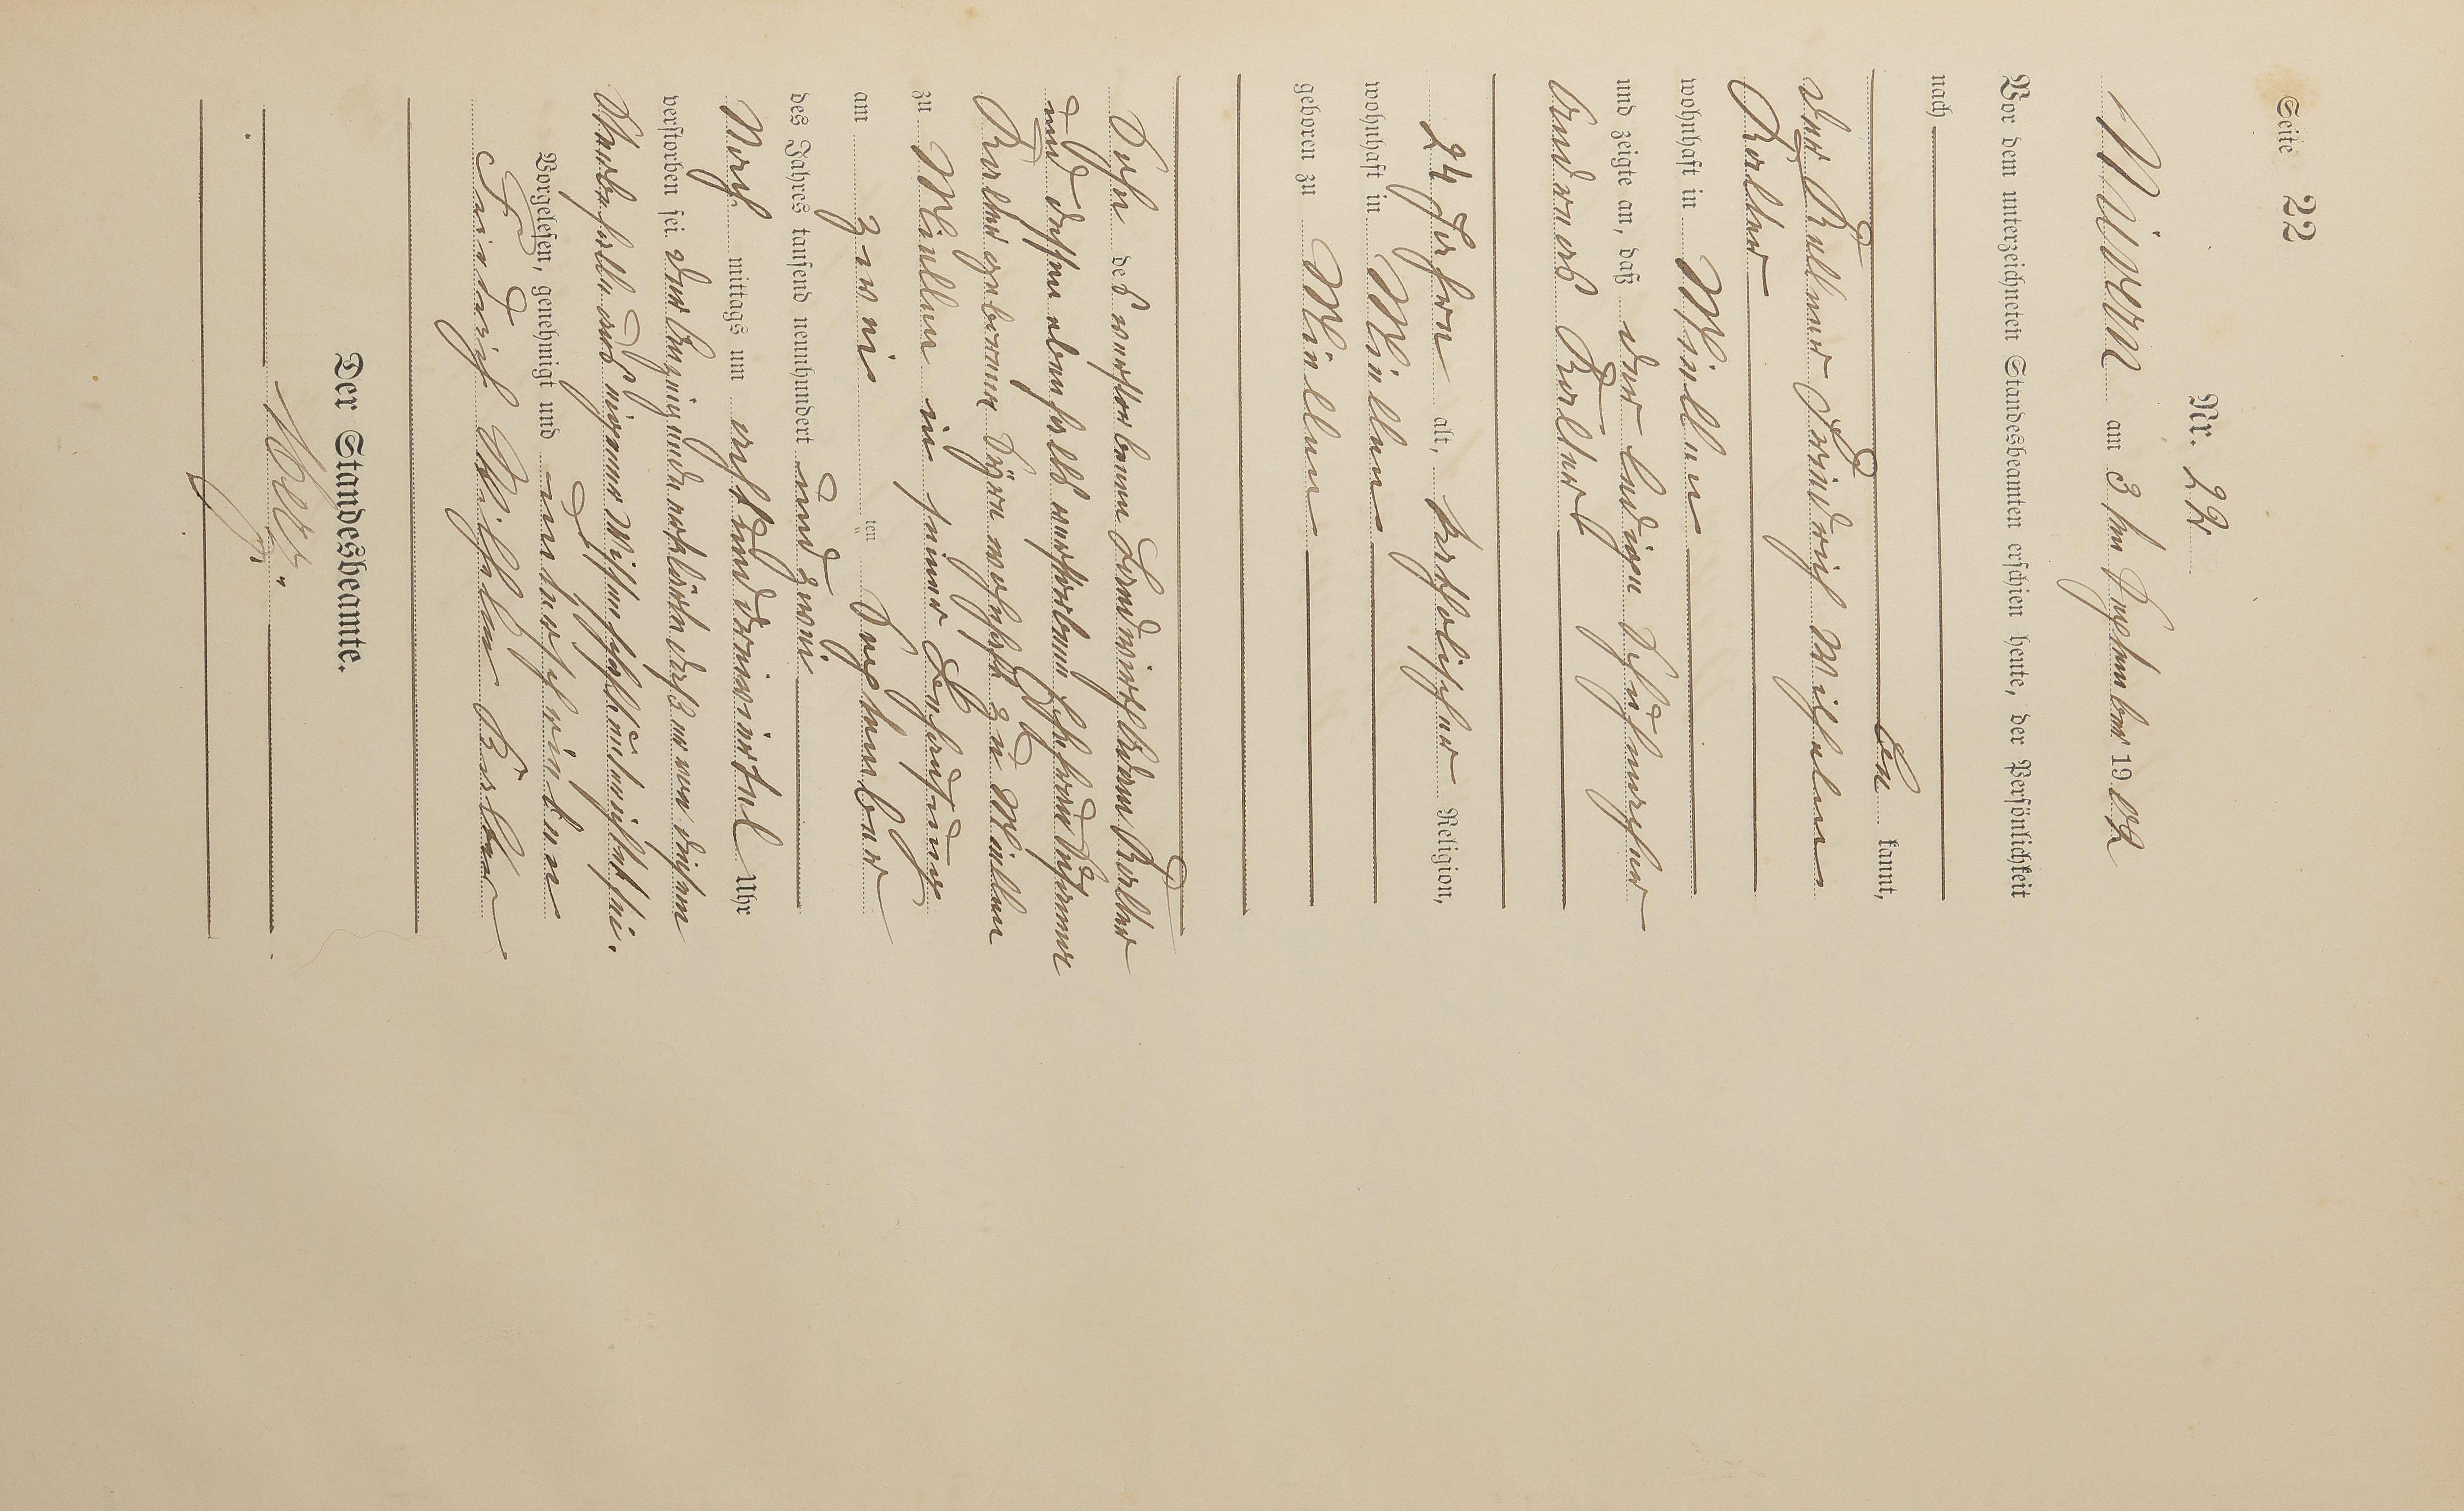 Seite 22
Nr. 22.
am 3ten September 1902
Vor dem unterzeichneten Standesbeamten erschien heute, der Persönlichkeit
nach
be kannt,
der Kellner Friedrich Wilhelm
wohnhaft in Müllen
und zeigte an, daß der ledige Schuhmacher
Andreas
24 Jahre alt, katholischer Religion,
wohnhaft in Müllen
geboren zu Müllen
Sohn des verstorbenen Landwirth Adam
und dessen ebenfalls verstorbenen Ehefrau
geborenen wohnhaft zu Müllen
zu Müllen in seiner Behausung
am zwei ten September
des Jahres tausend neunhundert und zwei
Nach mittags um acht und dreiviertel Uhr
verstorben sei. Der Anzeigende erklärte daß er von diesem
Sterbefalle aus eigener Wissenschaft unterrichtet sei.
Vorgelesen, genehmigt und unterschrieben
Friedrich Wilhelm
Der Standesbeamte.